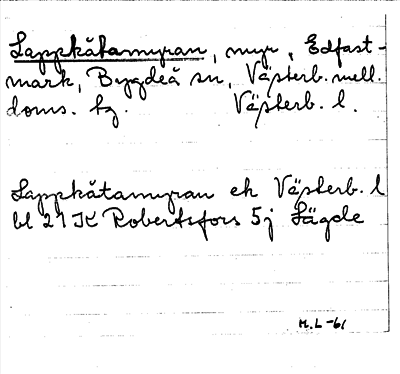 Lappkåtamyran, myr, Edfast-
mark, Bygdeå sn, Västerb. mell.
doms. tg. Västerb. l.
Lappkåtamyran ek Västerb. l
bl 21K Robertsfors 5j Lägde
M.L -61